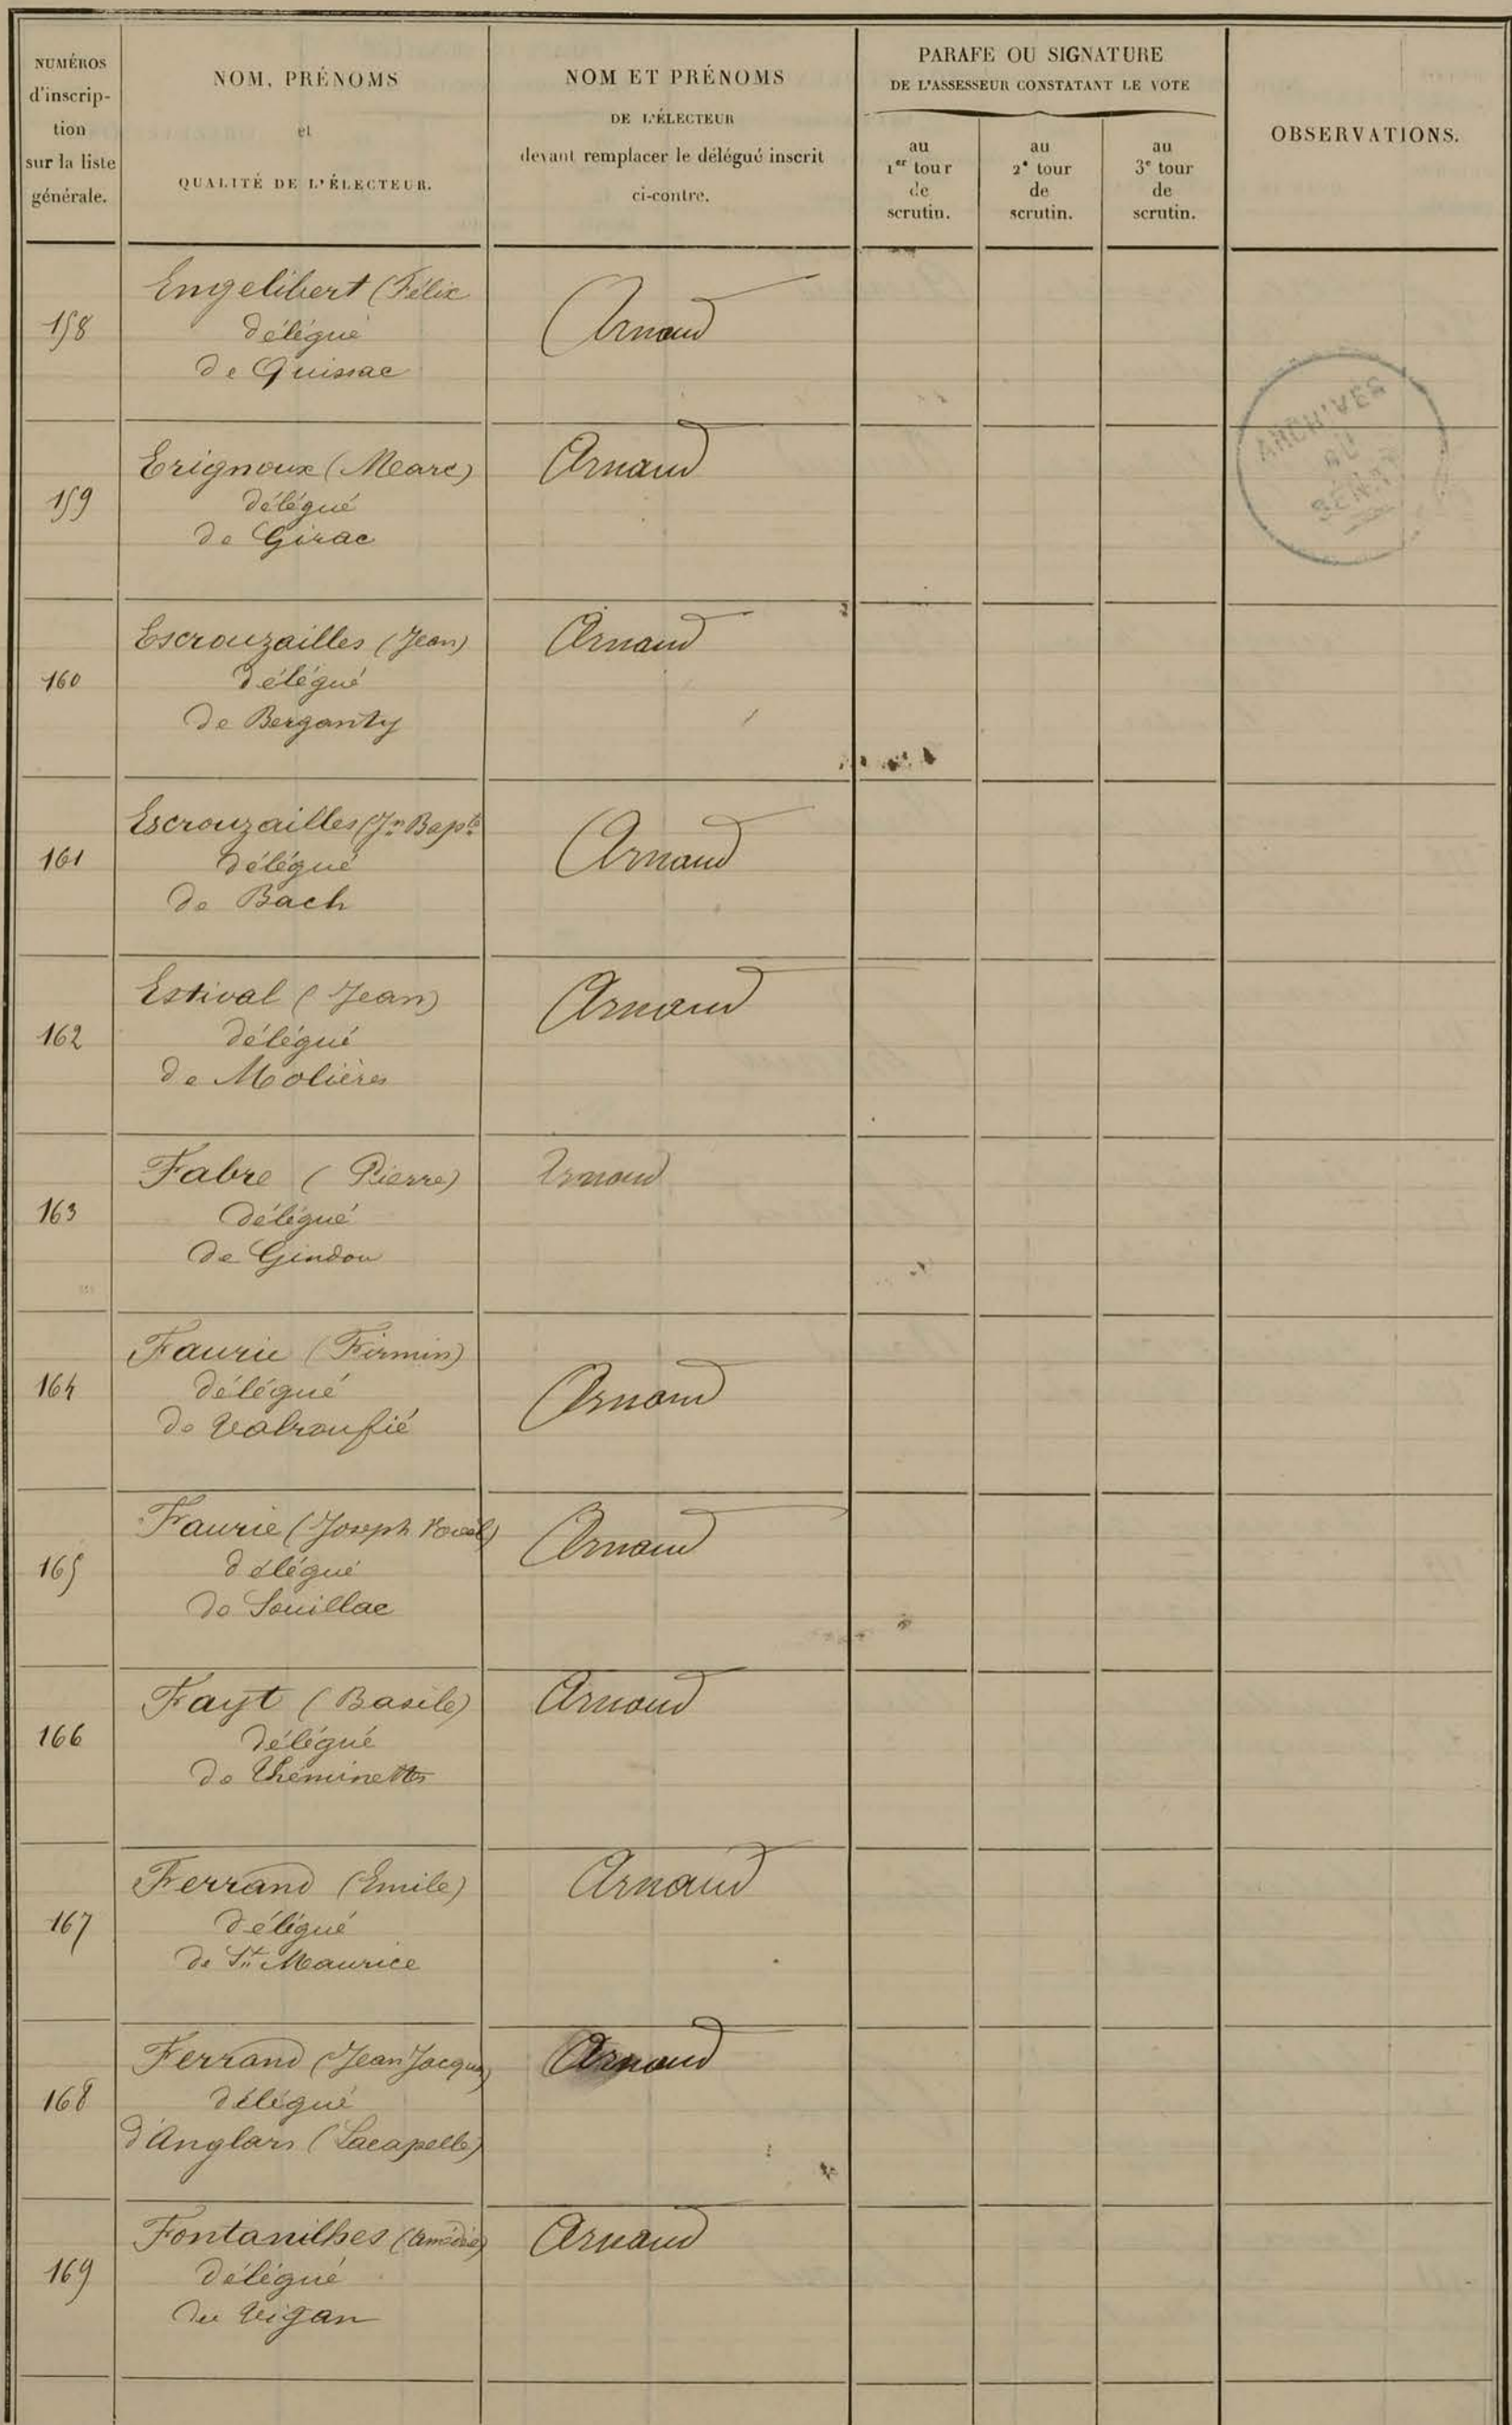 NUMÉROS
d'inscrip-
tion
sur la liste
générale.
NOM, PRÉNOMS
et
QUALITÉ DE L'ÉLECTEUR.
NOM ET PRÉNOMS
DE L'ÉLECTEUR
devant remplacer le délégué inscrit
ci-contre.
PARAFE OU SIGNATURE
DE L'ASSESSEUR CONSTATANT LE VOTE
au
1er tour
de
scrutin.
au
2e tour
de
scrutin.
au
3e tour
de
scrutin.
OBSERVATIONS.
158
Engelibert (Félix
délégué
de Quissac
Arnaud
159
Erignoux (Marc)
délégué
de Girac
Arnaud
160
Escrouzailles (Jean)
délégué
de Berganty
Arnaud
161
Escrouzailles (Jn Bapte
délégué
de Bach
Arnaud
162
Estival (Jean)
délégué
de Molières
Arnaud
163
Fabre (Pierre)
délégué
de Gindou
Arnaud
164
Faurie (Firmin)
délégué
de Valroufié
Arnaud
165
Faurie (Joseph
délégué
de Souillac
Arnaud
166
Fayt (Basile)
délégué
de Théminettes
Arnaud
167
Ferrand (Emile)
délégué
de St Maurice
Arnaud
168
Ferrand (Jean Jacques)
délégué
d'Anglars (Lacapelle)
Arnaud
169
Fontanilhes (Amédée)
délégué
du Vigan
Arnaud
ARCHIVES
DU
SÉNAT